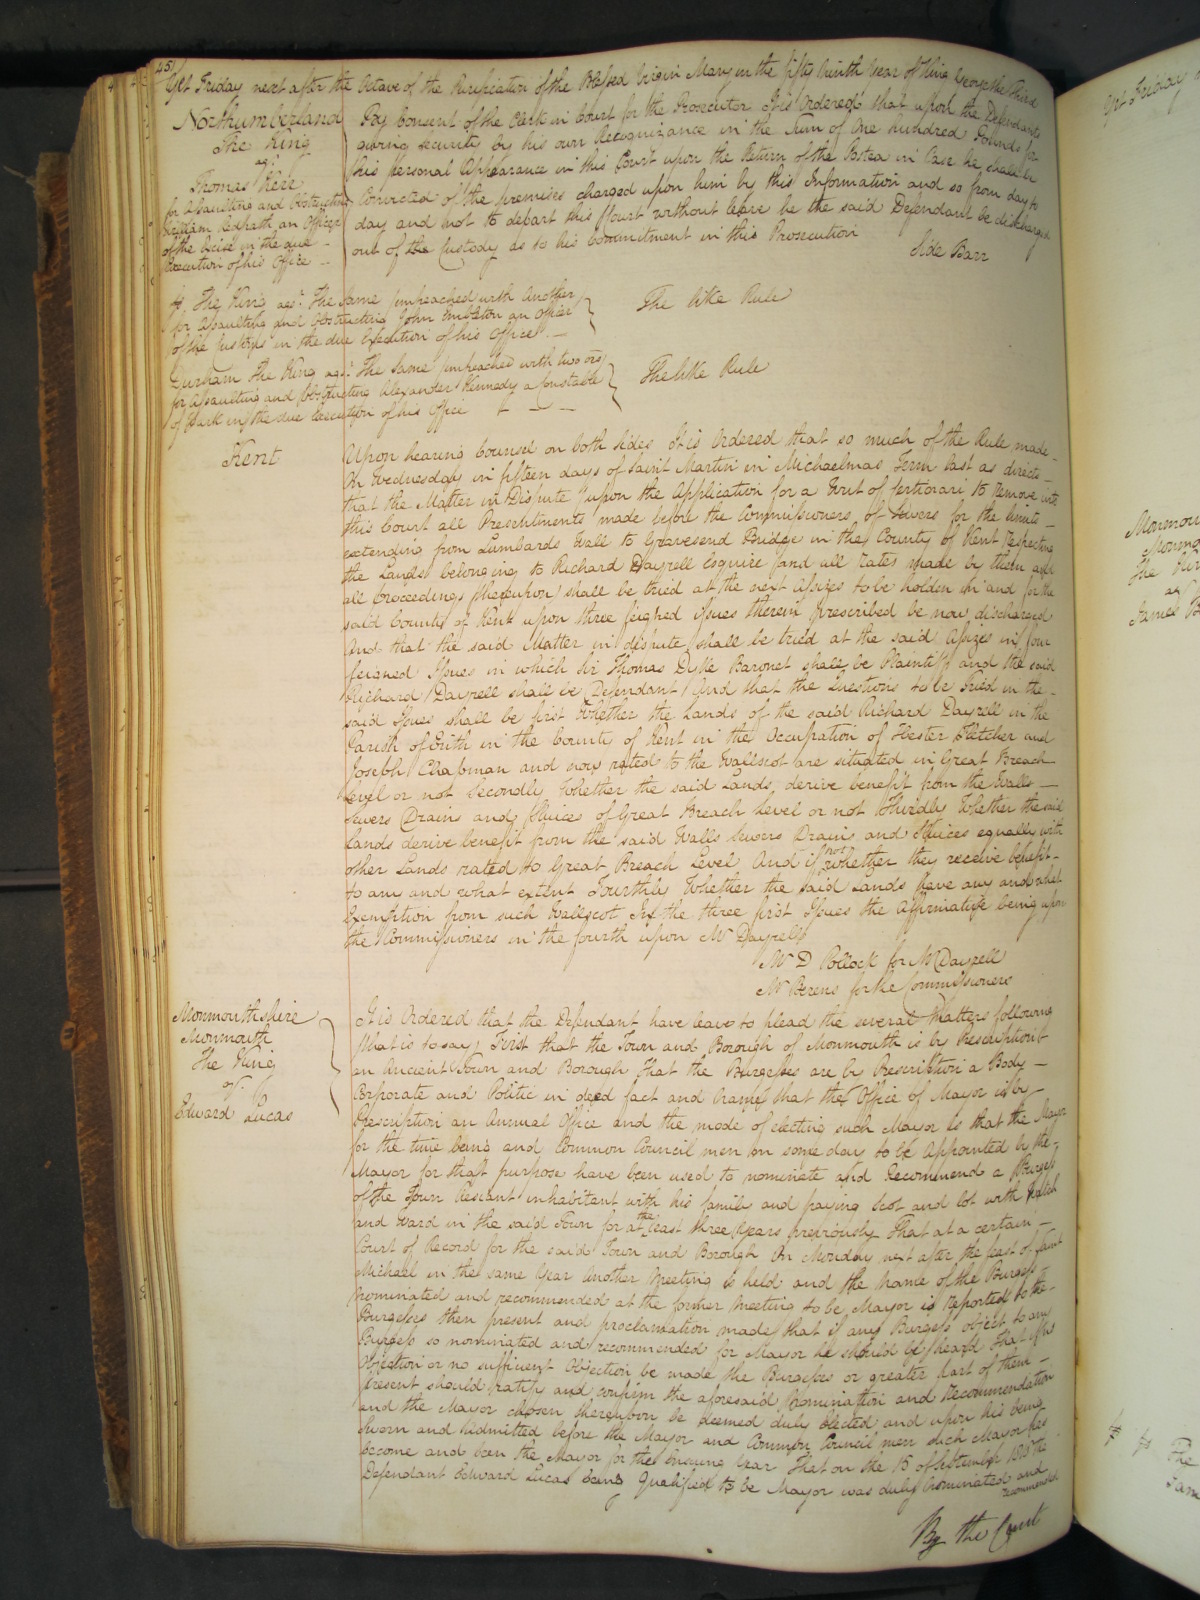 451
Yet Friday next after the Octave of the Purification of the Blessed Virgin Mary in the fifty Ninth Year of King George the Third
Northumberland
The King
agt
Thomas Kerr
for Assaulting and Obstructing
William Redpath an Officer
of the Excise in the due
Execution of his Office
By Consent of the Clerk in Court for the Prosecutor It is Ordered that upon the Defendants
giving security by his own Recognizance in the Sum of One hundred Pounds for
his personal Appearance in this Court upon the Return of the Postea in Case he shall be
Convicted of the premises charged upon him by this Information and so from day to
day and not to depart this Court without leave he the said Defendant be discharged
out of the Custody as to his Commitment in this Prosecution
Side Barr
The King agt. The Same impeached with Another
for Assaulting and Obstructing John Embleton an Officer
of the Customs in the due Execution of his Office
The like Rule
Durham The King agt. The Same impeached with two ors
for Assaulting and Obstructing Alexander Kennedy a Constable
of in the due Execution of his Office
The like Rule
Kent
Upon hearing Counsel on both sides It is Ordered that so much of the Rule made
On Wednesday in fifteen days of Saint Martin in Michaelmas Term last as directs
that the Matter in Dispute upon the Application for a Writ of Certiorari to remove into
this Court all Presentments made before the Commissioners of Sewers for the limits
extending from Lumbards Wall to Gravesend Bridge in the County of Kent respecting
the Lands belonging to Richard Dayrell Esquire and all rates made by them and
all Proceedings thereupon shall be tried at the next Assizes to be holden in and for the
said County of Kent upon three feigned issues therein prescribed be now discharged
And that the said Matter in dispute shall be tried at the said Assizes in four
feigned Issues in which Sir Thomas Dyke Baronet shall be Plaintiff and the said
Richard Dayrell shall be Defendant And that the Questions to be Tried in the
said Issues shall be first Whether the Lands of the said Richard Dayrell in the
Parish of Erith in the County of Kent in the Occupation of Hester Fletcher and
Joseph Chapman and now rated to the Wallscot are situated in Great Breach
Level or not Secondly Whether the said Lands derive benefit from the Walls
Sewers Drains and Sluices of Great Breach Level or not Thirdly Whether the said
Lands derive benefit from the said Walls Sewers Drains and Sluices equally with
other Lands rated to Great Breach Level And if not whether they receive benefit
to any and what extent Fourthly Whether the said Lands have any and what
Exemption from such Wallscot In the three first Issues the Affirmative being upon
the Commissioners in the fourth upon Mr Dayrell
Mr D Pollock for Mr Dayrell
Mr Berens for the Commissioners
Monmouthshire
Monmouth
The King
agt.
Edward Lucas
It is Ordered that the Defendant have leave to plead the several Matters following
that is to say First that the Town and Borough of Monmouth is by Prescription
an Ancient Town and Borough That the Burgesses are by Prescription a Body
Corporate and Politic in deed fact and Name that the Office of Mayor is by
Prescription an Annual Office and the mode of electing such Mayor is that the Mayor
for the time being and Common Council men on some day to be Appointed by the
Mayor for that purpose have been used to nominate and Recommend a Burgess
of the Town Resiant inhabitant with his family and paying Scot and lot with Watch
and Ward in the said Town for at the least three Years previously That at a certain
Court of Record for the said Town and Borough On Monday next after the feast of Saint
Michael in the same Year Another Meeting is held and the Name of the Burgess
nominated and recommended at the former Meeting to be Mayor is reported to the
Burgesses then present and proclamation made that if any Burgess object to any
Burgess so nominated and recommended for Mayor he should be heard That if no
Objection or no sufficient Objection be made the Burgesses or greater Part of them
present should ratify and confirm the aforesaid Nomination and Recommendation
and the Mayor chosen thereupon be deemed duly Elected and upon his being
Sworn and Admitted before the Mayor and Common Council men such Mayor has
become and been the Mayor for the ensuing Year That on the 15 of September the
Defendant Edward Lucas being Qualified to be Mayor was duly Nominated and
recommended
By the Court
Yet Friday
The